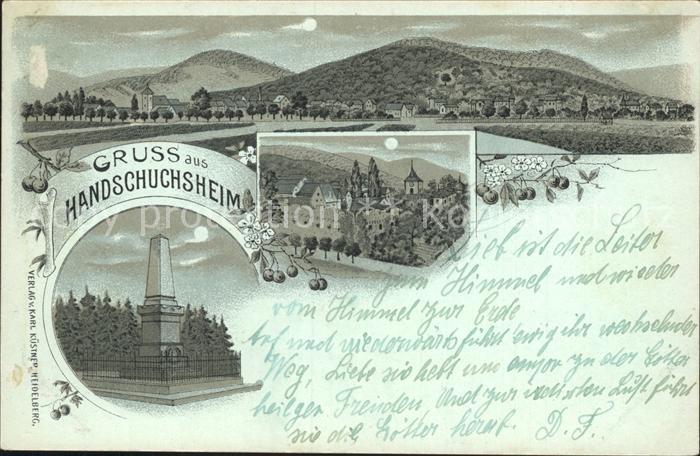 GRUSS aus
HANDSCHUCHSHEIM
VERLAG v. KARL KÜSTNER, HEIDELBERG.
Lieb ist die Leiter
zum Himmel und wieder
vom Himmel zur Erde
auf und niederwärts führt ewig ihr wechselnder
Weg, Liebe sie hebt uns empor zu der Götter
heilgen Freuden, Und zur untersten Luft führt
sie die Götter herab. D. F.